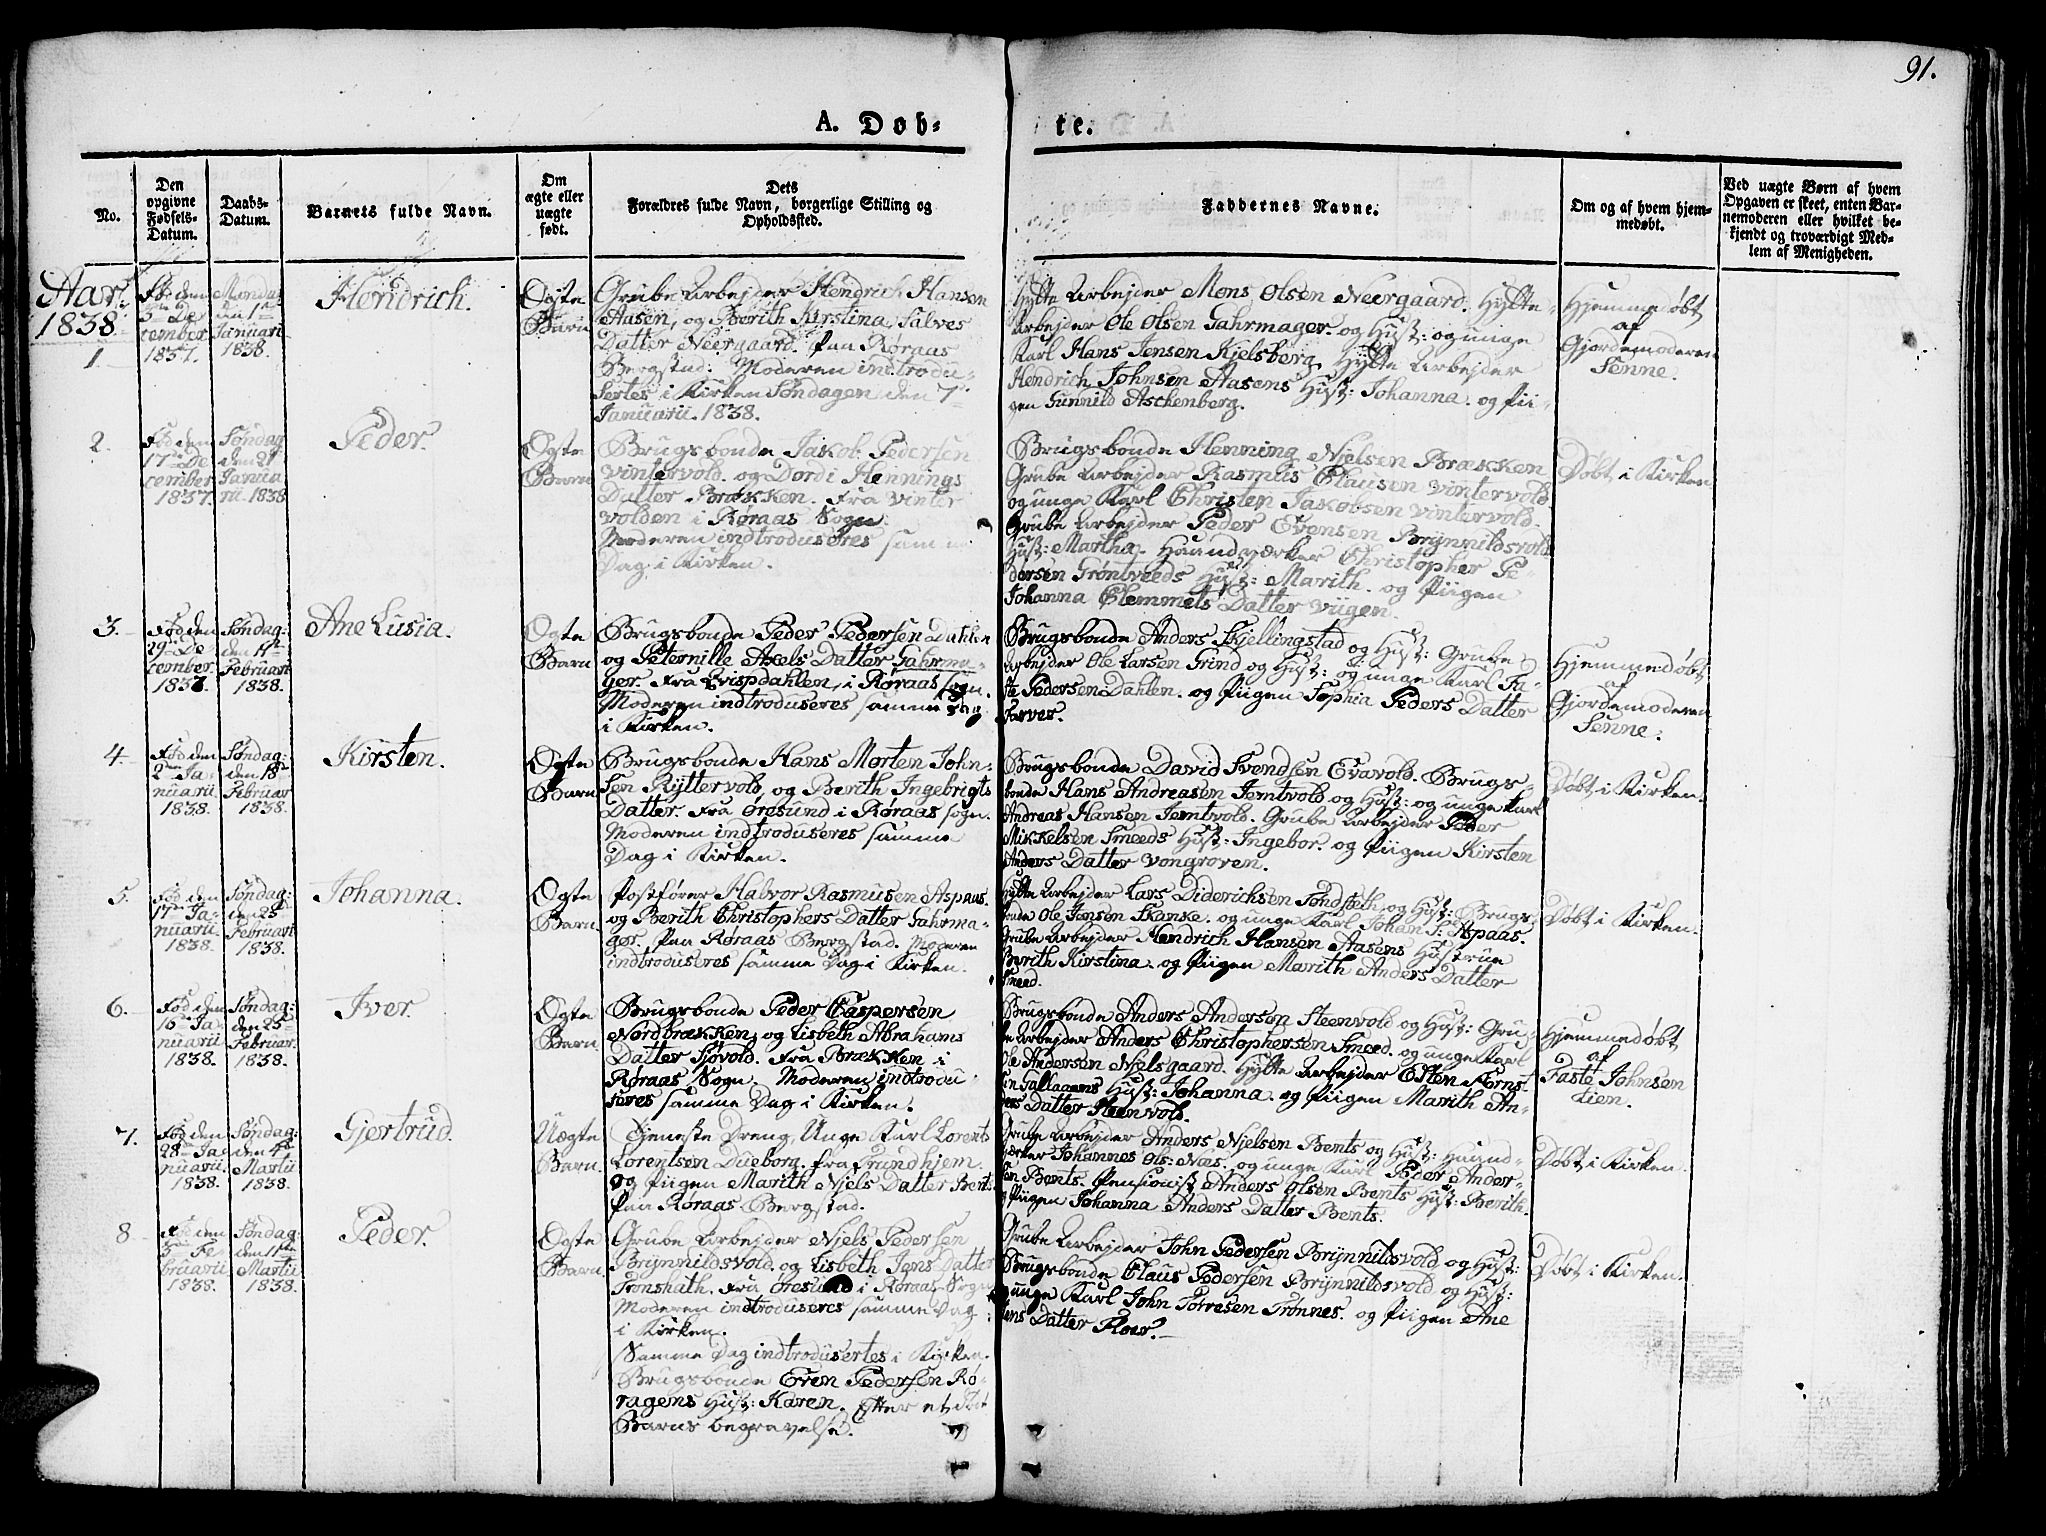 91.
A. Døb-
te.
No.
Den
opgivne
Fødsels-
Datum.
Daabs-
Datum.
Barnets fulde Navn.
Om
ægte eller
uægte
født.
Dets
Forældres fulde Navn, borgerlige Stilling og
Opholdssted.
Faddernes Navne.
Om og af hvem hjem-
medøbt.
Ved uægte Børn af hvem
Opgaven er skeet, enten Bar-
nemoderen eller hvilket be-
kjendt og troværdigt Med-
lem af Menigheden.
Aar
1838
1.
Fød den
5te De
cember
1837.
Mandag
den 1te
Januarii
1838.
Hendrich.
Ægte
Barn
Grube Arbejder Hendrich Hansen
Aasen, og Berith Kirstina Salves
Datter Neergaard. Paa Røraas
Bergstad. Moderen indtrodu-
sertes i Kirken Søndagen den 7de
Januarii. 1838.
Hytte Arbejder Mons Olsen Neergaard. Hytte-
Arbejder Ole Olsen Gahrmager. og Hust: og unge
Karl Hans Jensen Kjelsberg. Hytte Arbejder
Hendrich Johnsen Aasens Hust: Johanna. og Pii-
gen Gunnild Aschenberg.
Hjemme døbt
af
Gjordemoderen
Senne.
2.
Fød den
17de De
cember
1837.
Søndag
den 21
Janua
rii. 1838
Peder.
Ægte
Barn
Brugsbonde Jakob Pedersen
Vintervold. og Dordi Hennings
Datter Brækken. Fra Vinter
volden i Røraas Sogn.
Moderen indtroduseres samme
Dag i Kirken.
Brugsbonde Henning Njelsen Brækken
Grube Arbejder Rasmus Clausen Vintervold
og unge Karl Christen Jakobsen Vintervold.
Grube Arbejder Peder Evensen Brynnildsvold
Hust: Martha. Haandværker Christopher Pe-
dersen Grøntveeds Hust: Marith. og Piigen
Johanna Clemmets Datter Viigen.
Døbt i Kirken
3.
Fød den
29 De
cember
1837
Søndag:
den 11te
Februari
1838.
Ane Lusia.
Ægte
Barn
Brugsbonde Peder Pedersen Dahlen
og Peternille Axels Datter Gahrma-
ger. Fra Evispdahlen, i Røraas Sogn.
Moderen indtroduseres samme Dag
i Kirken.
Brugsbonde Anders Skjellingstad og Hust: Grube
Arbejder Ole Larsen Grind og Hust: og unge Karl Fa-
ste Pedersen Dahlen. og Piigen Sophia Peders Datter
Farver.
Hjemmedøbt
af
Gjordemoderen
Senne.
4.
Fød den
2den Ja
nuarii
1838.
Søndag:
den 18de
Februar
1838.
Kirsten.
Ægte
Barn
Brugsbonde Hans Morten John-
sen Ryttervold, og Berith Ingebrigts
Datter. Fra Øresund i Røraas Sogn.
Moderen indtroduseres samme
Dag i Kirken.
Brugsbonde David Svendsen Evavold. Brugs
bonde Hans Andreasen Jemtvold og Hust: og unge Karl
Andreas Hansen Jemtvold. Grube Arbejder Peder
Mikkelsen Smeeds Hust: Ingebor. og Piigen Kirsten
Anders Datter Vongroven.
Døbt i Kirken.
5.
Fød den
17de Ja-
nuarii
1838.
Søndag:
den 25de
Februari
1838.
Johanna.
Ægte
Barn.
Postfører Halvor Rasmusen Aspaas.
og Berith Christophers Datter Gahrma-
ger. Paa Røraas Bergstad. Moderen
indtroduseres samme Dag i Kirken.
Hytte Arbejder Lars Diderichsen Sundseth, og Hust: Brugs-
bonde Ole Jensen Skanke. og unge Karl Johan P: Aspaas.
Grube Arbejder Hendrich Hansen Aasens Hustrue
Berith Kirstina. og Piigen Marith Anders Datter
Smeed.
Døbt i Kirken.
6.
Fød den
15de Ja
nuarii
1838.
Søndag:
den 25de
Februar.
1838.
Iver.
Ægte
Barn.
Brugsbonde Peder Caspersen
Nordbrækken, og Lisbeth Abrahams
Datter Sjøvold. Fra Brækken i
Røraas Sogn. Moderen indtrodu-
seres samme Dag i Kirken.
Brugsbonde Anders Andersen Steenvold og Hust: Gru-
be Arbejder Anders Christophersen Smeed. og unge Karl
Ole Andersen Njelsgaard. Hytte Arbejder Esten Forns
sen Gullaaens Hust: Johanna. og Piigen Marith An-
ders Datter Steenvold.
Hjemmedøbt
af
Faste Johnsen
Lien.
7.
Fød den
28de Ja
nuarii
1838.
Søndag:
den 4de
Martii
1838.
Gjertrud.
Uægte
Barn.
Tjeneste Dreng, Unge Karl Lorents
Lorentsen Dueborg. fra Trundhjem.
og Piigen Marith Njels Datter Bents.
Paa Røraas Bergstad.
Grube Arbejder Anders Njelsen Bents og Hust: Haand-
værker Johannes Ols: Næs. og unge Karl Peder Ander-
sen Bents. Pensionist Anders Olsen Bents Hust: Berith.
og Piigen Johanna Anders Datter Bents.
Døbt i Kirken.
8
Fød den
5te Fe
bruarii
1838.
Søndag.
den 11te
Martii
1838.
Peder.
Ægte
Barn.
Grube Arbejder Njels Pedersen
Brynnildsvold. og Lisbeth Jens Datter
Tronshath. Fra Øresund i Røraas Sogn
Moderen indtroduseres samme Dag
i Kirken.
Samme Dag indtrodusertes i Kirken.
Brugsbonde Even Pedersen Rø-
ragens Hust: Karen. Efter et
Barns begravelse.
Grube Arbejder John Pedersen Brynnildsvold. og Hust:
Brugsbonde Claus Pedersen Brynnildsvold og Hust:
og unge Karl John Torresen Trønnes. og Piigen Ane
Jens Datter Floer.
Døbt i Kirken.